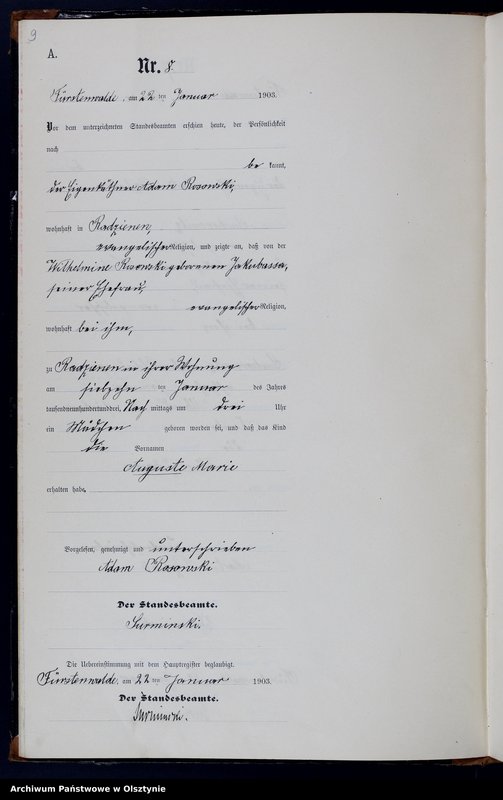 9
A.
Nr. 8
Fürstenwalde, am 22 ten Januar 1903.
Vor dem unterzeichneten Standesbeamten erschien heute, der Persönlichkeit
nach
be kannt,
der Eigenkäthner Adam Rosowski,
wohnhaft in Radzienen,
evangelischer Religion, und zeigte an, daß von der
Wilhelmine Rosowski geborenen Jakubassa,
seiner Ehefrau,
evangelischer Religion,
wohnhaft bei ihm,
zu Radzienen in ihrer Wohnung
am siebzehn ten Januar des Jahres
tausendneunhundertunddrei, Nach mittags um drei Uhr
ein Mädchen geboren worden sei, und daß das Kind
die Vornamen
Auguste Marie
erhalten habe.
Vorgelesen, genehmigt und unterschrieben
Adam Rosowski
Der Standesbeamte.
Surminski.
Die Uebereinstimmung mit dem Hauptregister beglaubigt.
Fürstenwalde, am 22 ten Januar 1903.
Der Standesbeamte.
Surminski.
Archiwum Państwowe w Olsztynie